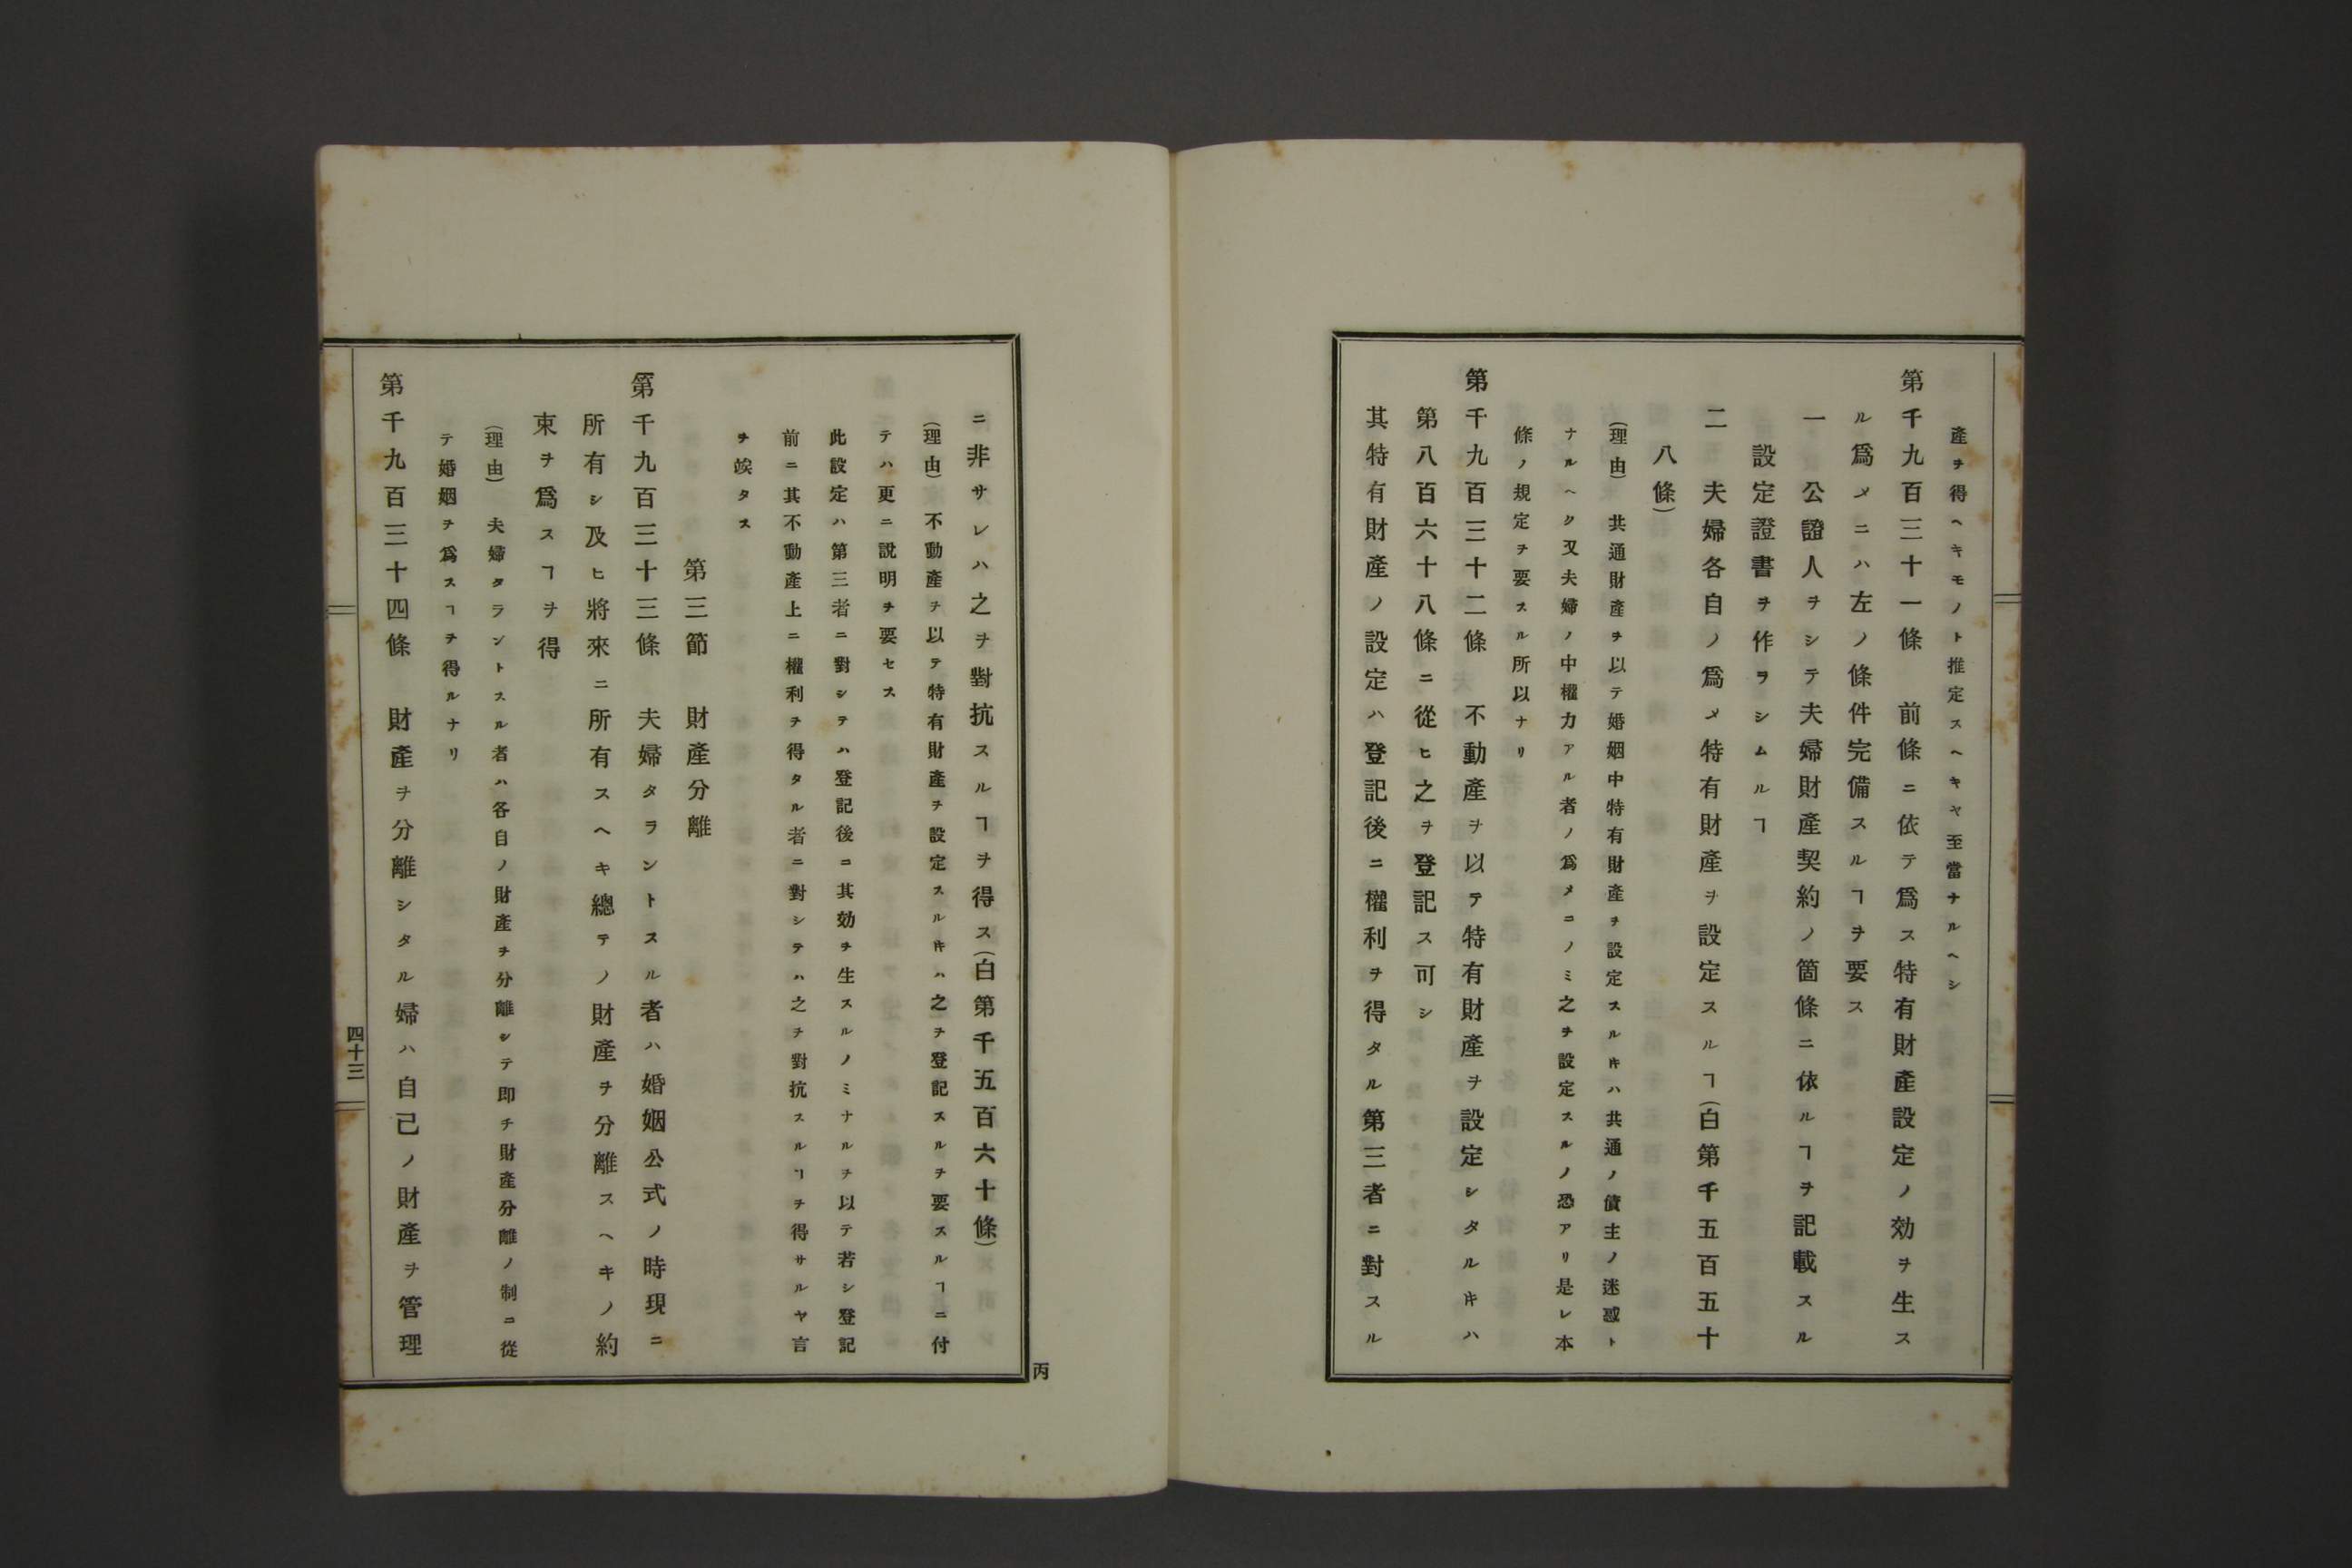 產ヲ得ヘキモノト推定スヘキヤ至當ナルヘシ
第千九百三十一條　前條ニ依テ爲ス特有財產設定ノ効ヲ生ス
ル爲メニハ左ノ條件完備スルヿヲ要ス
一　公證人ヲシテ夫婦財產契約ノ箇條ニ依ルヿヲ記載スル
設定證書ヲ作ヲシムルヿ
二　夫婦各自ノ爲メ特有財產ヲ設定スルヿ(白第千五百五十
八條)
(理由)　共通財產ヲ以テ婚姻中特有財產ヲ設定スルキハ共通ノ債主ノ迷惑ト
ナルヘク又夫婦ノ中權力アル者ノ爲メニノミ之ヲ設定スルノ恐アリ是レ本
條ノ規定ヲ要スル所以ナリ
第千九百三十二條　不動產ヲ以テ特有財產ヲ設定シタルキハ
第八百六十八條ニ從ヒ之ヲ登記ス可シ
其特有財產ノ設定ハ登記後ニ權利ヲ得タル第三者ニ對スル
ニ非サレハ之ヲ對抗スルヿヲ得ス(白第千五百六十條)
(理由)　不動產ヲ以テ特有財產ヲ設定スルキハ之ヲ登記スルヲ要スルヿニ付
テハ更ニ說明ヲ要セス
此設定ハ第三者ニ對シテハ登記後ニ其効ヲ生スルノミナルヲ以テ若シ登記
前ニ其不動產上ニ權利ヲ得タル者ニ對シテハ之ヲ對抗スルヿヲ得サルヤ言
ヲ竢タス
第三節　財產分離
第千九百三十三條　夫婦タラントスル者ハ婚姻公式ノ時現ニ
所有シ及ヒ將來ニ所有スヘキ總テノ財產ヲ分離スヘキノ約
束ヲ爲スヿヲ得
(理由)　夫婦タラントスル者ハ各自ノ財產ヲ分離シテ卽チ財產分離ノ制ニ從
テ婚姻ヲ爲スヿヲ得ルナリ
第千九百三十四條　財產ヲ分離シタル婦ハ自己ノ財產ヲ管理
四十三
丙